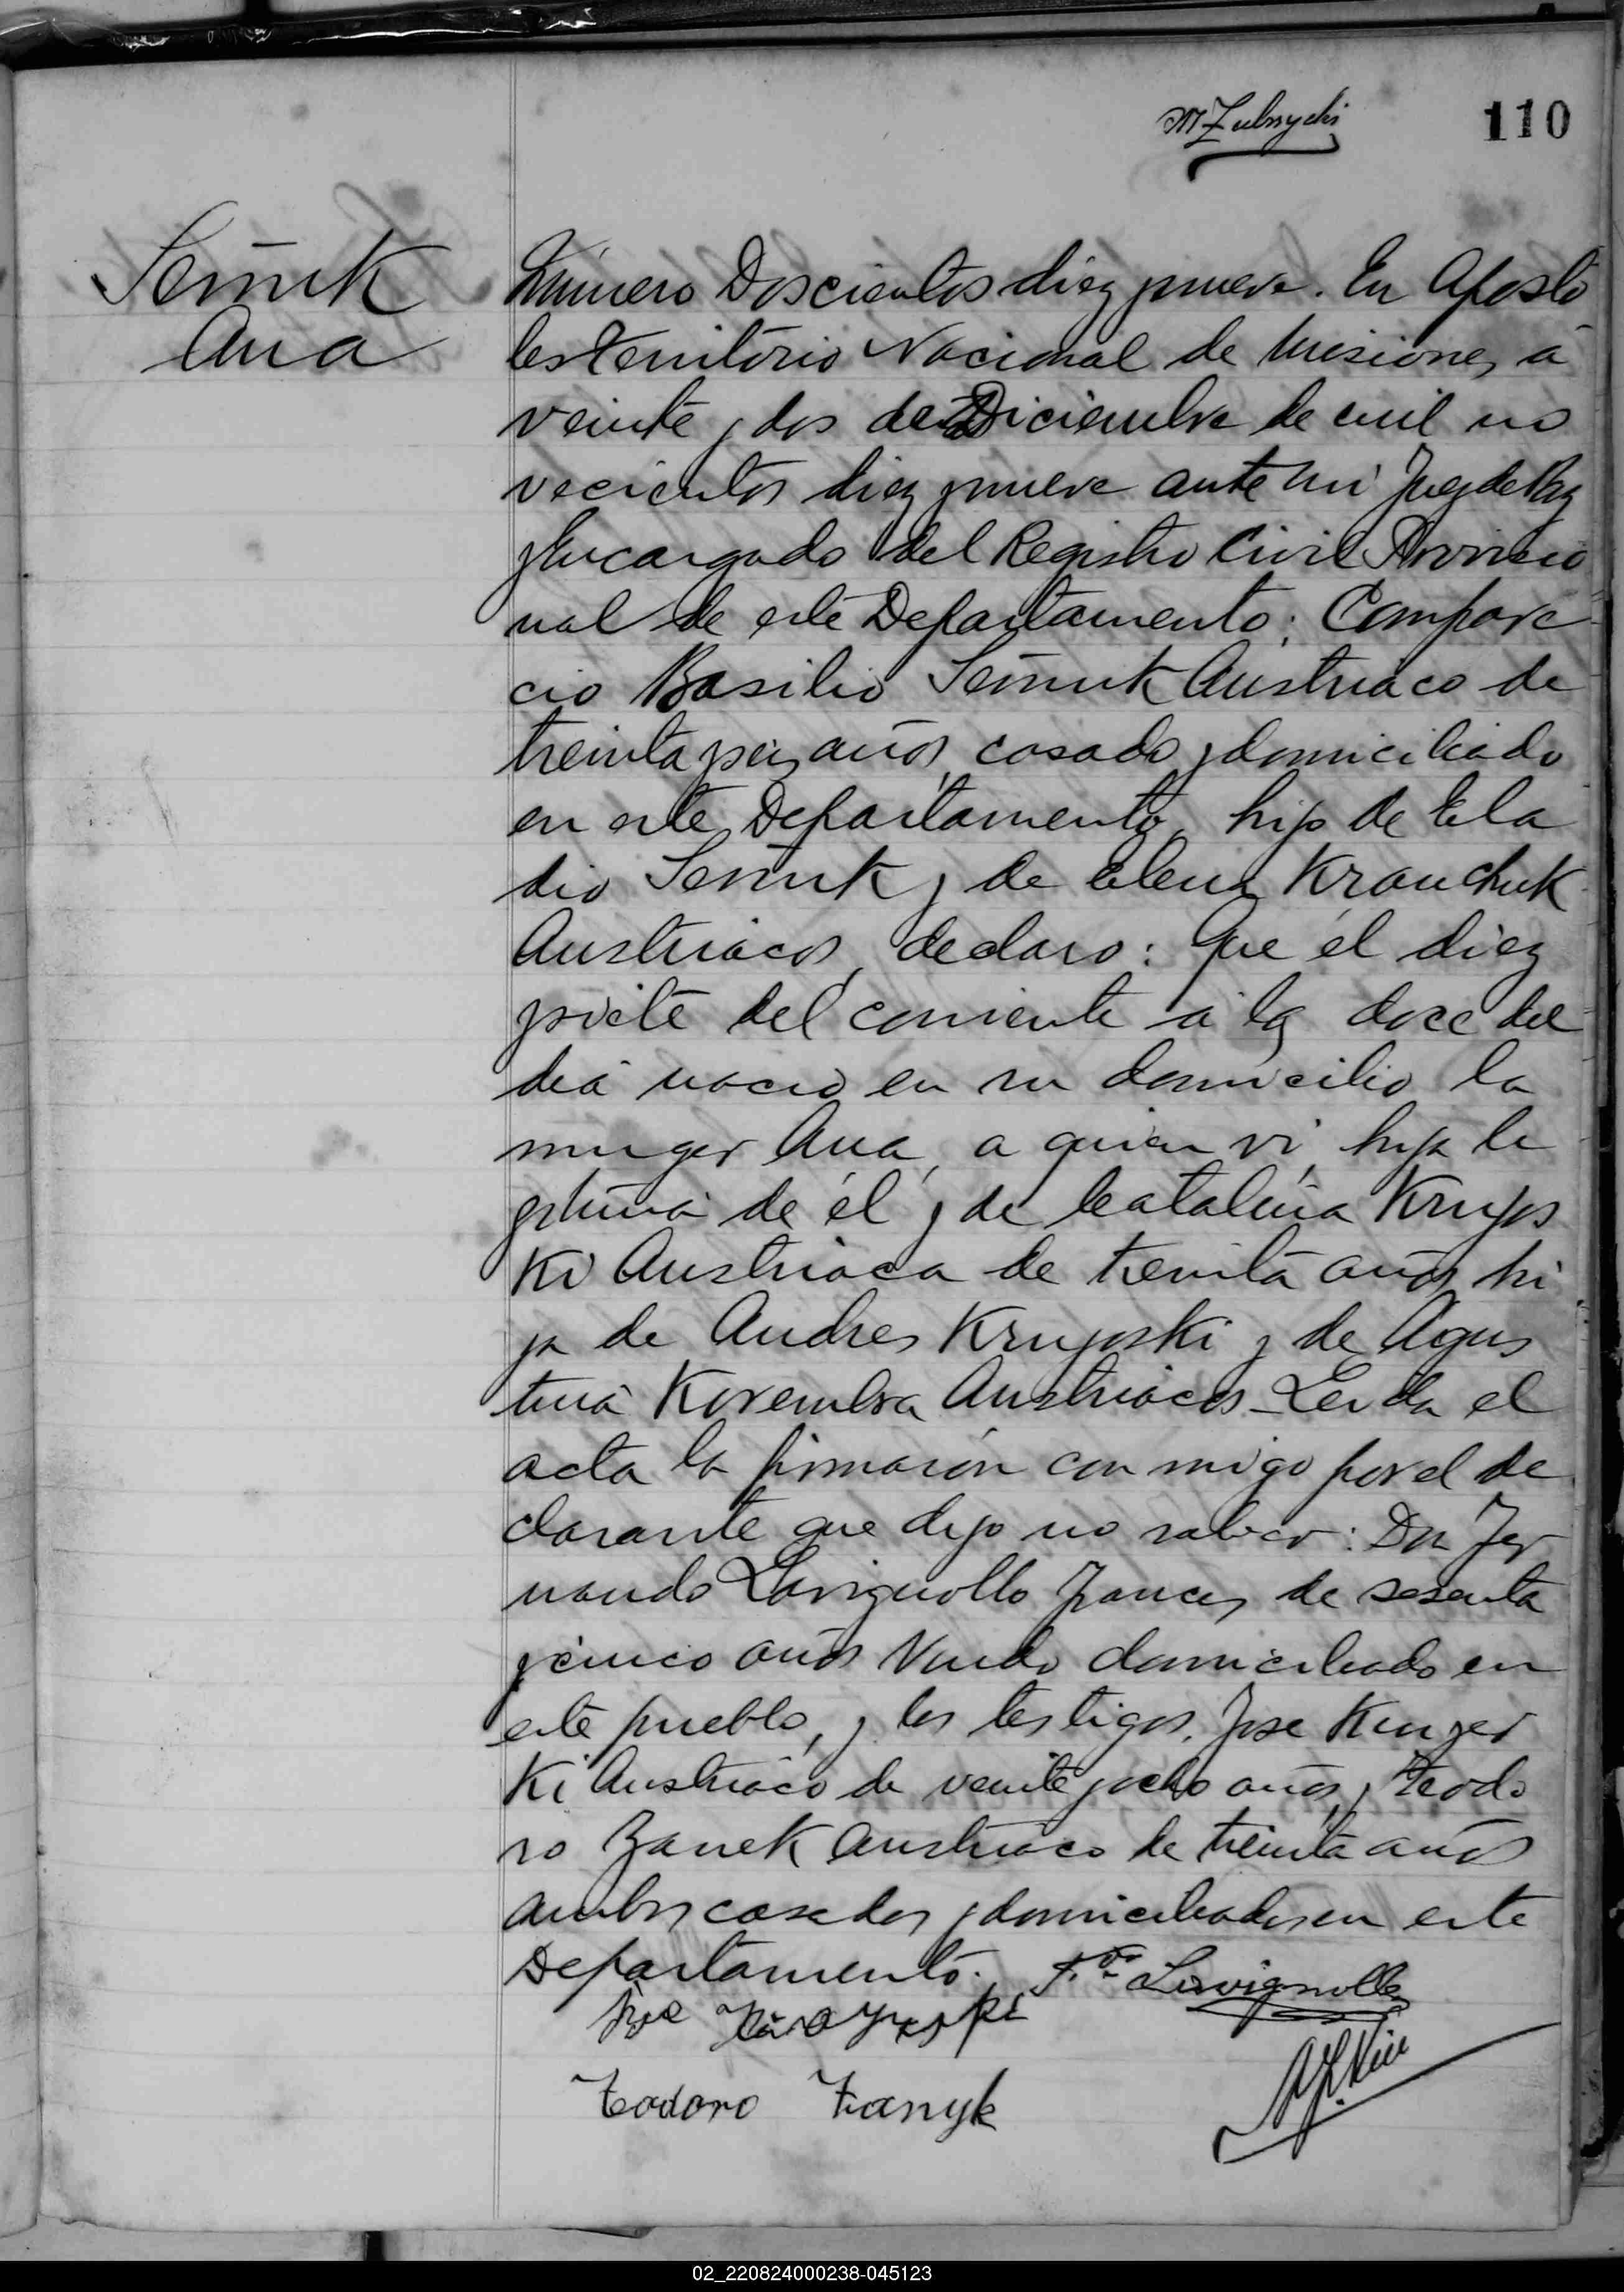 MZubrycki
110
Semuk
Ana
Número Doscientos diez y nueve. En Aposto
les Territorio Nacional de Misiones, a
veinte y dos de Diciembre de mil no
vecientos diez y nueve ante mi Juez de Paz
y Encargado del Registro Civil Provicio
nal de este Departamento; Compare
cio Basilio Semuk Austriaco de
treinta y seis años, casado, y domiciliado
en este Departamento, hijo de Ela
dio Semuk y de Elena Krauchuk
Austriacos, declaro: Que el diez
y siete del corriente a las doce del
dia nacio en su domicilio la
muger Ana, a quien vi, hija le
gitima de él y de Catalina Kruyos
ki Austriaca de treinta años, hi
ja de Andres Kruyoski y de Agus
tina Korembra Austriacos - Leida el
acta la firmaron con migo por el de
clarante que dijo no saber: Dn Fer
nando Lavignolle Frances, de sesenta
y cinco años Viudo domiciliado en
este pueblo, y los testigos, Jose Kruyes
ki Austriaco de veinte y ocho años, y Teodo
ro Zanek Austriaco de treinta años
ambos casados y domiciliados en este
Departamento.. F.do Lavignolle
Jose
Teodoro Zanyk
02_220824000238-045123